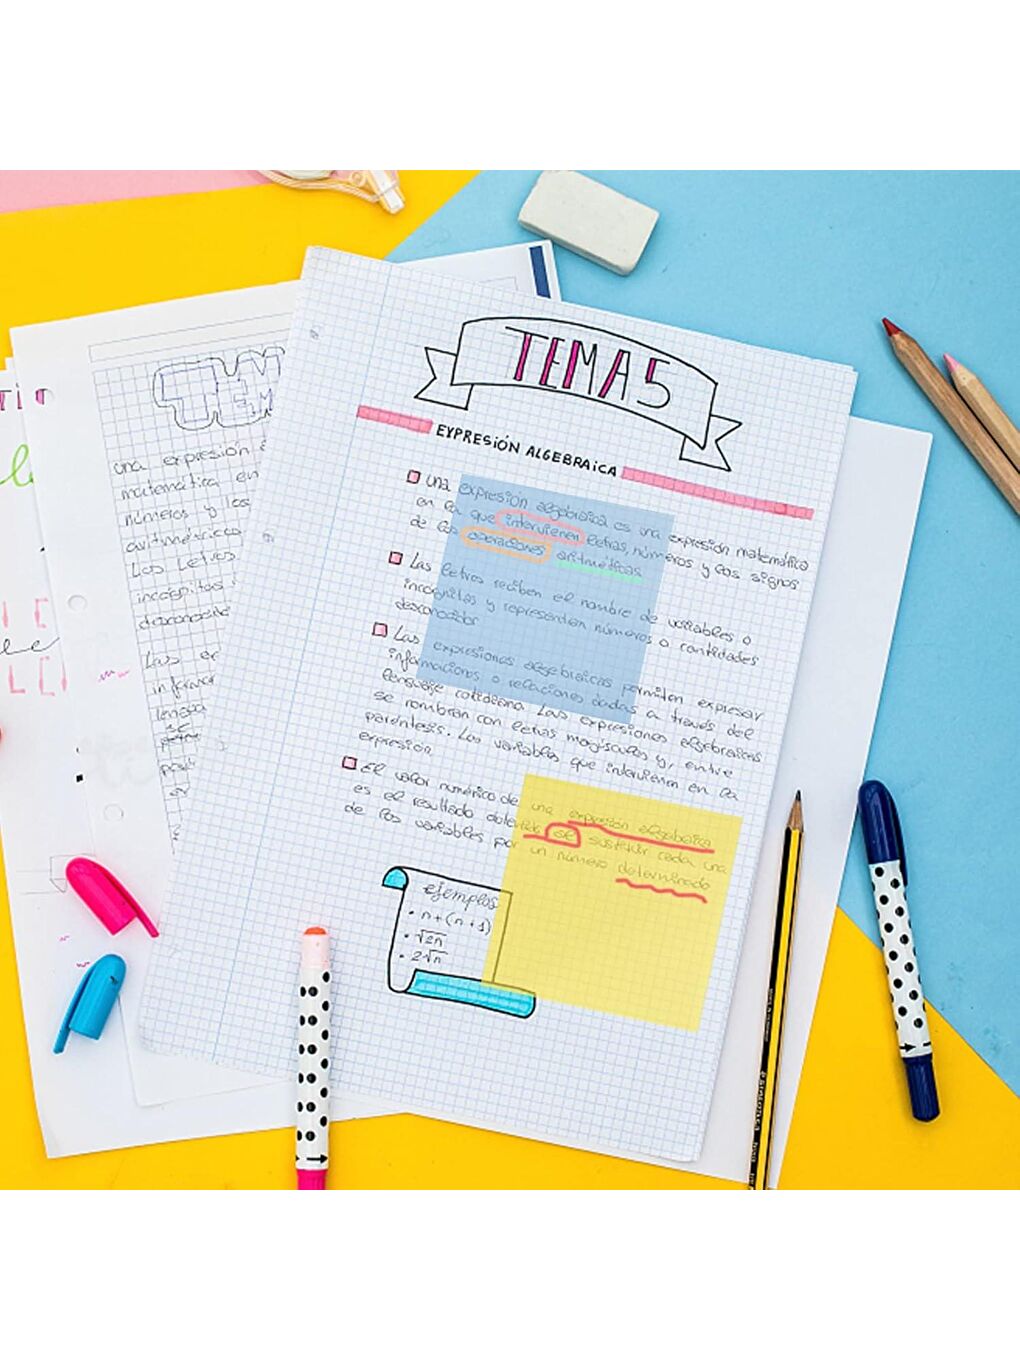 TEMA 5
EXPRESIÓN ALGEBRAICA
Una expresión algebraica es una expresión matemática
en la que intervienen letras, números y los signos
de las operaciones aritméticas
Las letras reciben el nombre de variables o
incógnitas y representan números o cantidades
desconocidas
Las expresiones algebraicas permiten expresar
informaciones o relaciones dadas a través del
lenguaje cotidiano. Las expresiones algebraicas
se nombran con letras mayúsculas y, entre
paréntesis. Las variables que intervienen en la
expresión
El valor numérico de una expresión algebraica
es el resultado de se sustituir cada una
de las variables por un número determinado
ejemplos
• n+(n+1)
• √2n
• 2√n
TEM
una expresión
matemática en
números y los
aritméticas
Las Letras
incógnitas
Las ex
informa
lengua
se